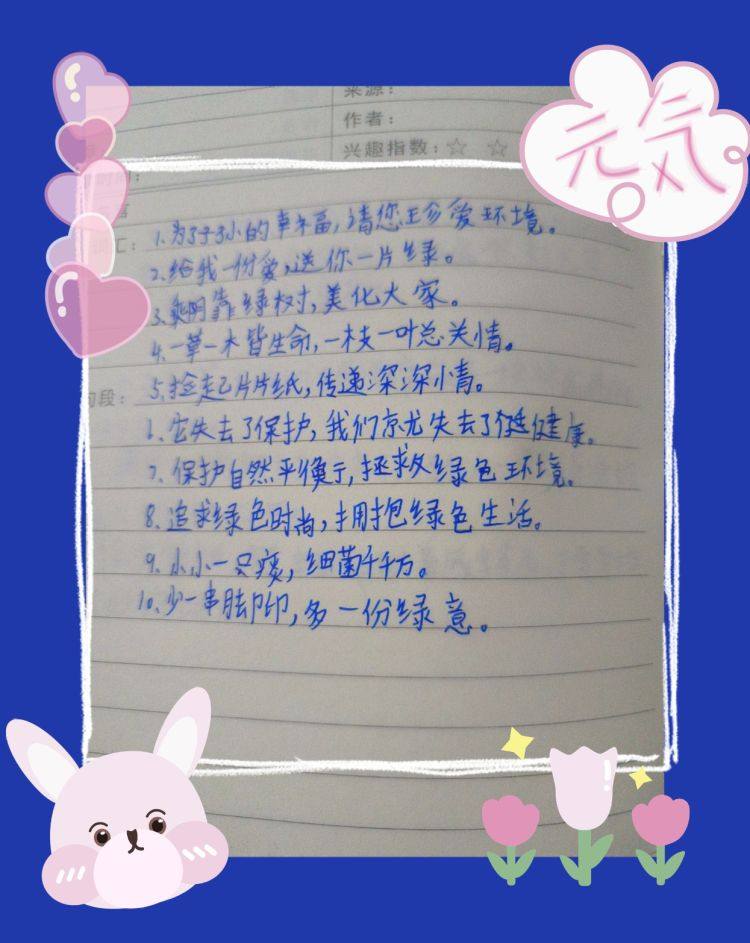 来源：
作者：
兴趣指数：☆ ☆
元気
时间：
词汇：
1.为了子小的幸福，请您珍爱环境。
2.给我一份爱，送你一片绿。
3.乘阴靠绿树，美化大家。
4.一草一木皆生命，一枝一叶总关情。
5.捡起片片纸，传递深深情。
句段：
6.它失去了保护，我们就失去了健健康。
7.保护自然平衡，拯救绿色环境。
8.追求绿色时尚，拥抱绿色生活。
9.小小一只痰，细菌千千万。
10.少一串脚印，多一份绿意。